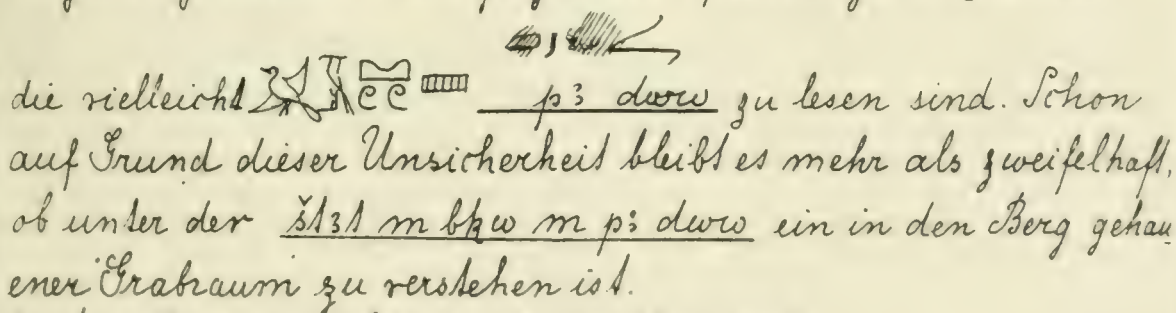 die vielleicht 𓅮𓇋𓈋𓏲𓏲𓈇 p ꜣ dww zu lesen sind. Schon
auf Grund dieser Unsicherheit bleibt es mehr als zweifelhaft,
ob unter der štꜣt m bkw m pꜣ dww ein in den Berg gehau
ener Grabraum zu verstehen ist.